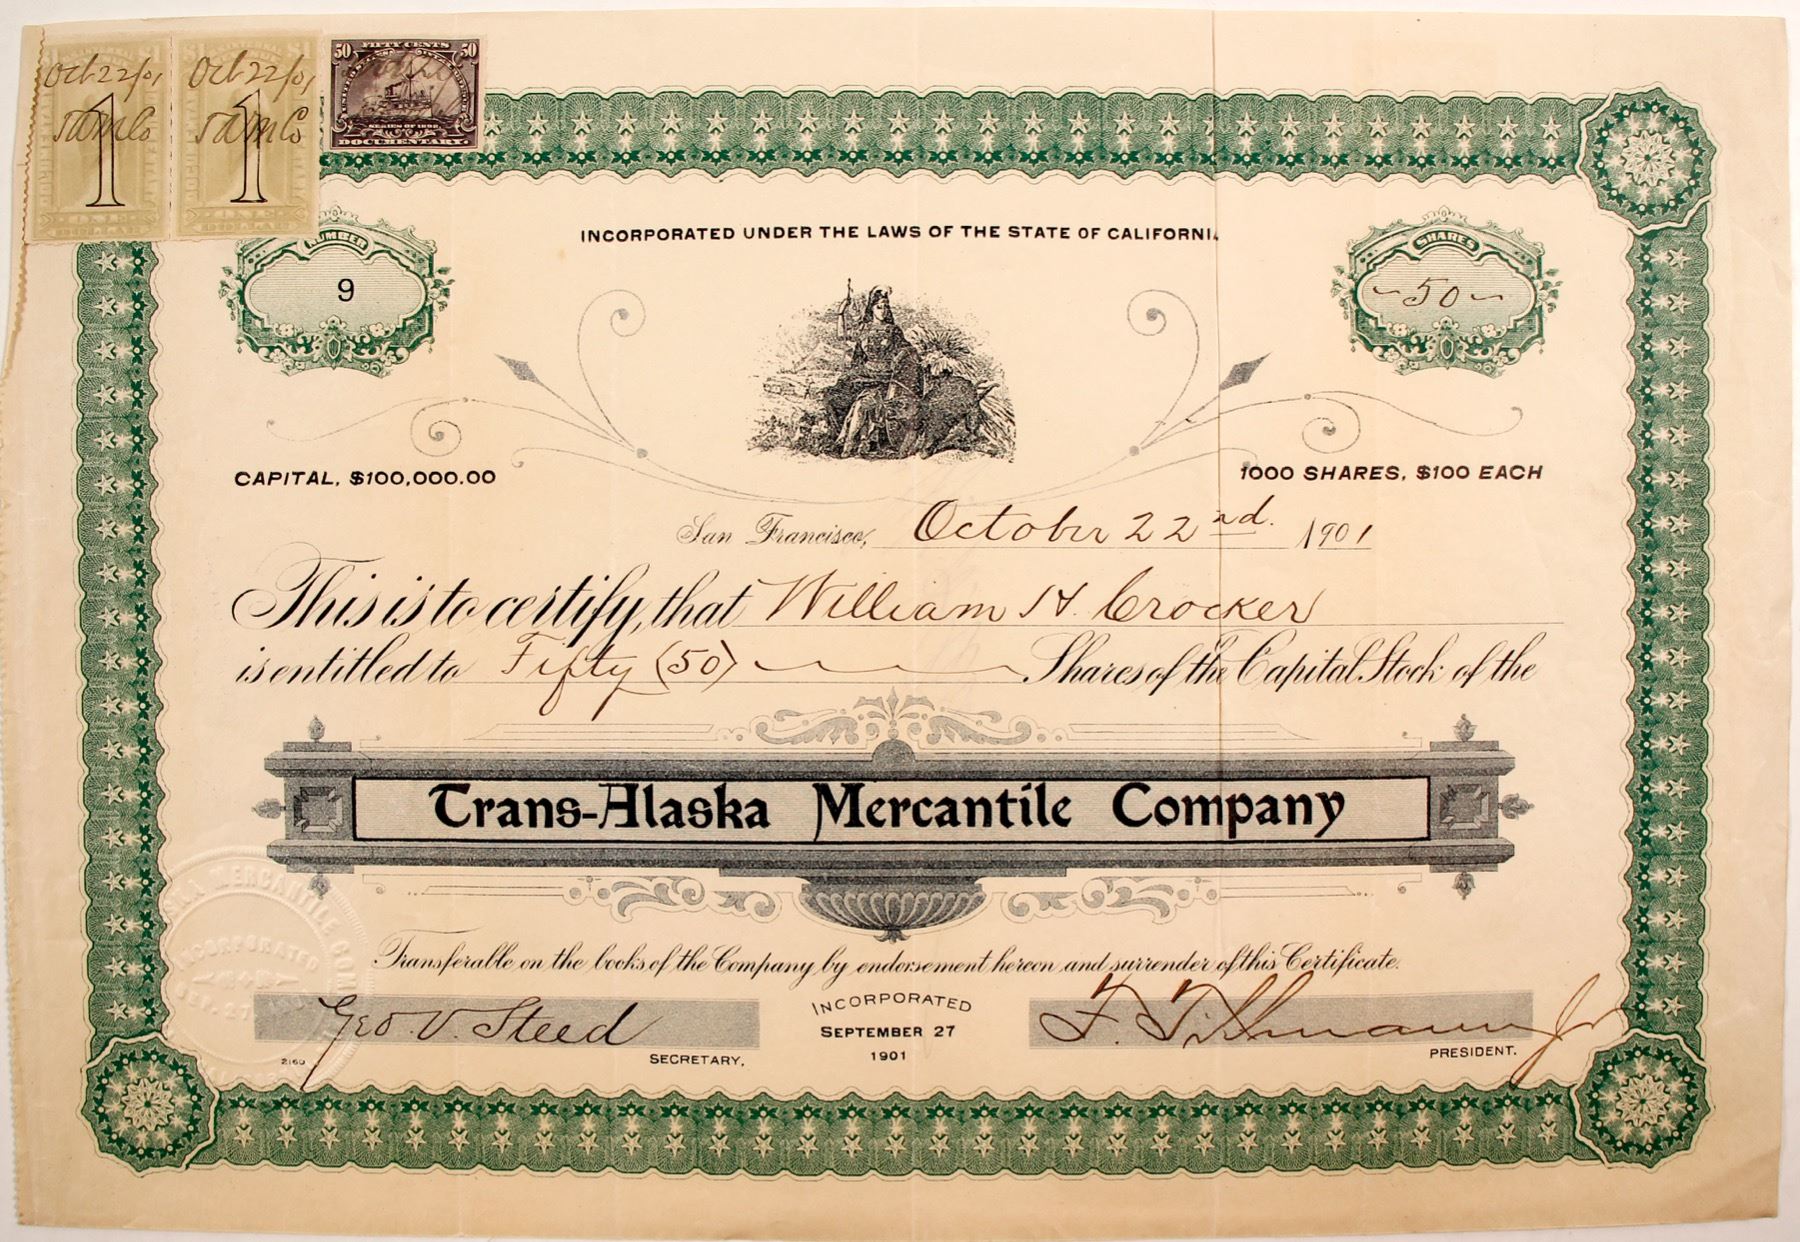 Oct 22/01
TAMCo
1
ONE
DOLLAR
Oct 22/01
TAMCo
1
ONE
DOLLAR
50 FIFTY CENTS 50
SERIES OF 1898
DOCUMENTARY
NUMBER
9
INCORPORATED UNDER THE LAWS OF THE STATE OF CALIFORNIA
SHARES
50
CAPITAL, $100,000.00
1000 SHARES, $100 EACH
San Francisco, October 22nd. 1901
This is to certify, that William H. Crocker
is entitled to Fifty (50) Shares of the Capital Stock of the
Trans-Alaska Mercantile Company
Transferable on the books of the Company by endorsement hereon and surrender of this Certificate.
Geo. V. Steed
SECRETARY.
2160
INCORPORATED
SEPTEMBER 27
1901
F. Tillmann Jr
PRESIDENT.
MERCANTILE COM
INCORPORATED
SEP. 27